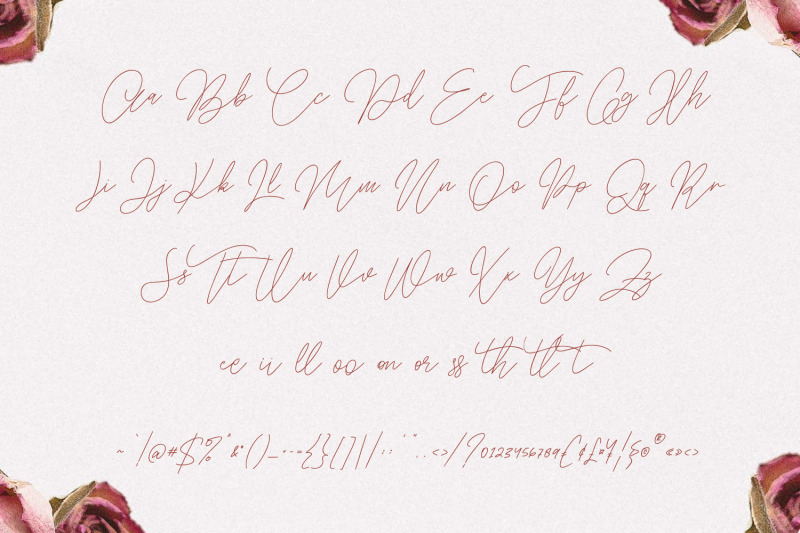 Aa Bb Cc Dd Ee Ff Gg Hh
Ii Jj Kk Ll Mm Nn Oo Pp Qq Rr
Ss Tt Uu Vv Ww Xx Yy Zz
ee ii ll oo on or ss th tt
~ ` ! @ # $ % ^ & * ( ) _ - + = { } [ ] | \ : ; " ' , . < > / ? 0 1 2 3 4 5 6 7 8 9